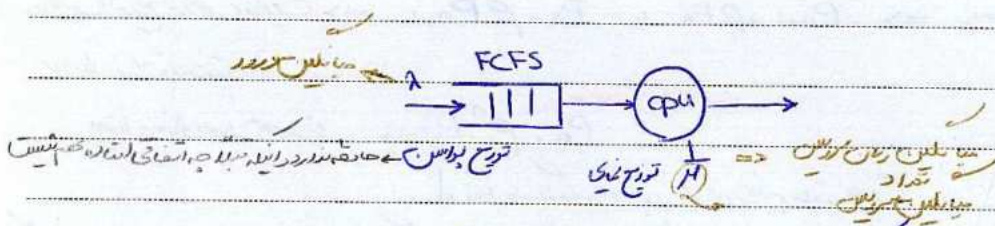 FCFS
میانگین ورود
λ
cpu
توزیع پواسن ← حافظه ندارد و اینکه قبلا چه اتفاقی افتاده مهم نیست
توزیع نمایی
1/μ ⇒ میانگین زمان سرویس
تعداد
میانگین سرویس